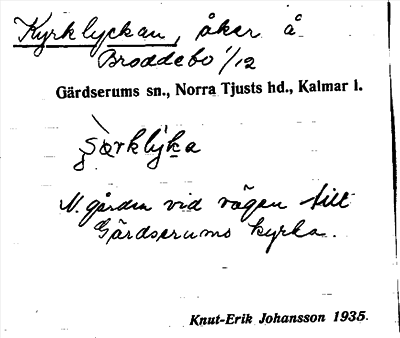 Kyrklyckan, åker å
Broddebo 1/12
Gärdserums sn., Norra Tjusts hd., Kalmar l.
N. gården vid vägen till
Gärdserums kyrka.
Knut-Erik Johansson 1935.